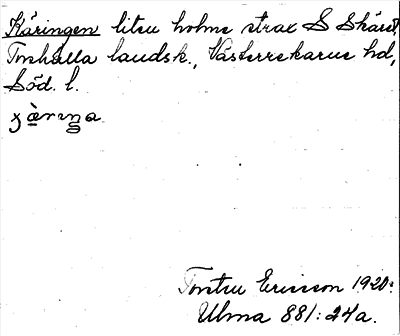 Käringen liten holme strax S Skäret,
Torshälla landsk., Västerrekarne hd,
Söd. l.
Torsten Ericsson 1920.
Ulma 881:24a.